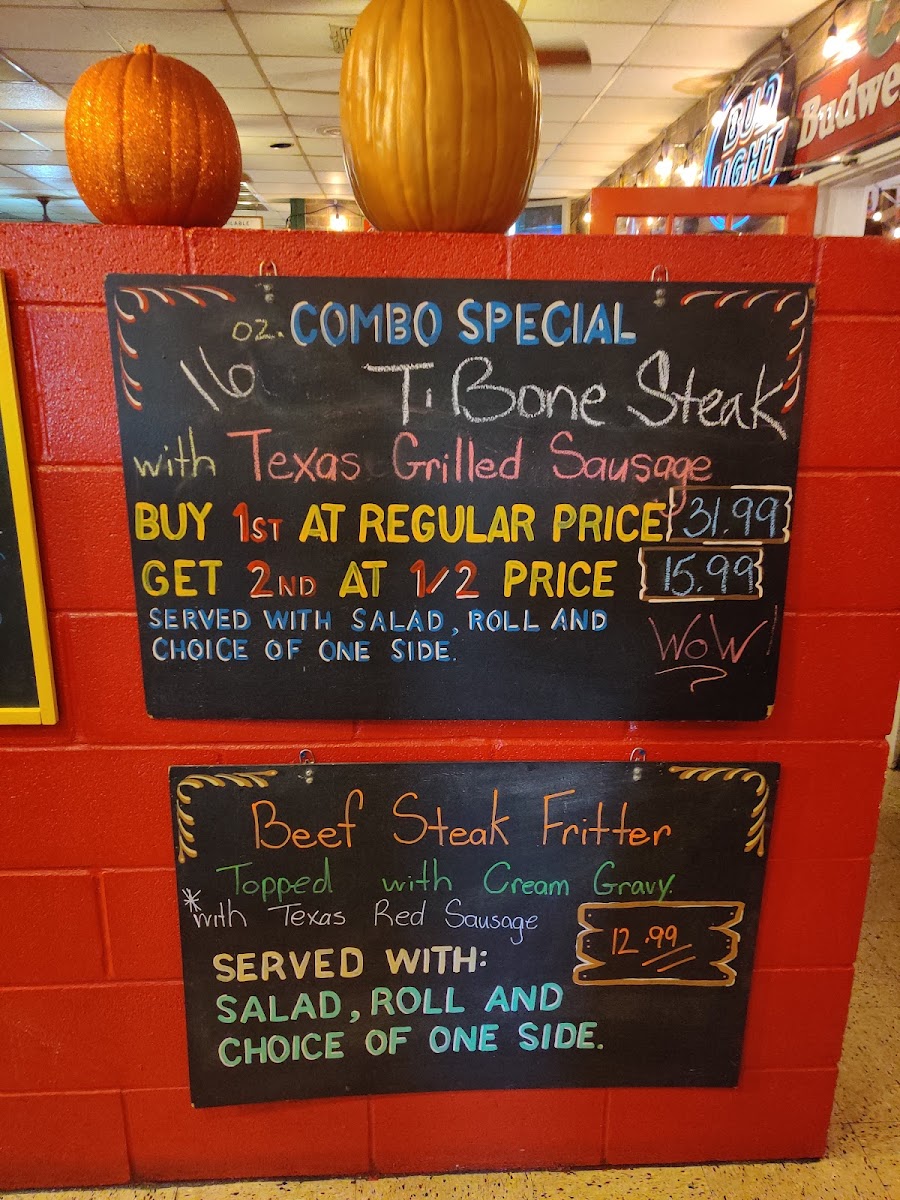 BUD
LIGHT
Budwe
OZ. COMBO SPECIAL
16 T. Bone Steak
with Texas Grilled Sausage
BUY 1ST AT REGULAR PRICE 31.99
GET 2ND AT 1/2 PRICE 15.99
SERVED WITH SALAD, ROLL AND
CHOICE OF ONE SIDE.
WOW!
Beef Steak Fritter
Topped with Cream Gravy.
*with Texas Red Sausage
12.99
SERVED WITH:
SALAD, ROLL AND
CHOICE OF ONE SIDE.